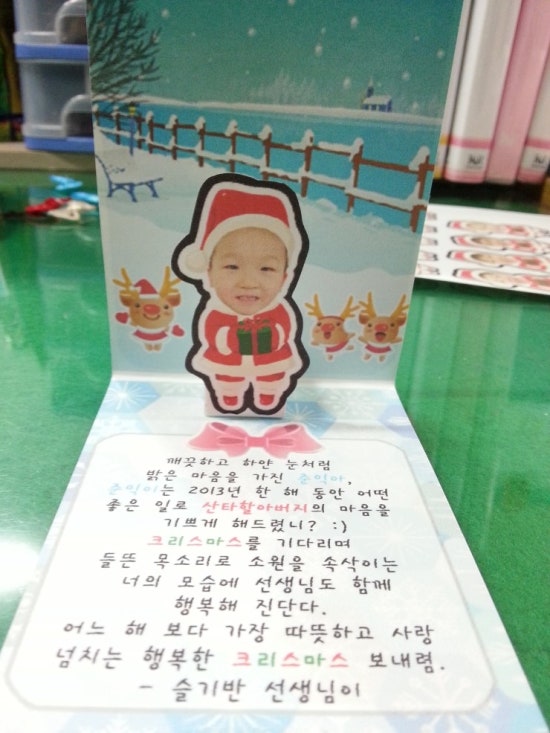 깨끗하고 하얀 눈처럼
밝은 마음을 가진 준익아,
준익이는 2013년 한 해 동안 어떤
좋은 일로 산타할아버지의 마음을
기쁘게 해드렸니? :)
크리스마스를 기다리며
들뜬 목소리로 소원을 속삭이는
너의 모습에 선생님도 함께
행복해 진단다.
어느 해 보다 가장 따뜻하고 사랑
넘치는 행복한 크리스마스 보내렴.
- 슬기반 선생님이